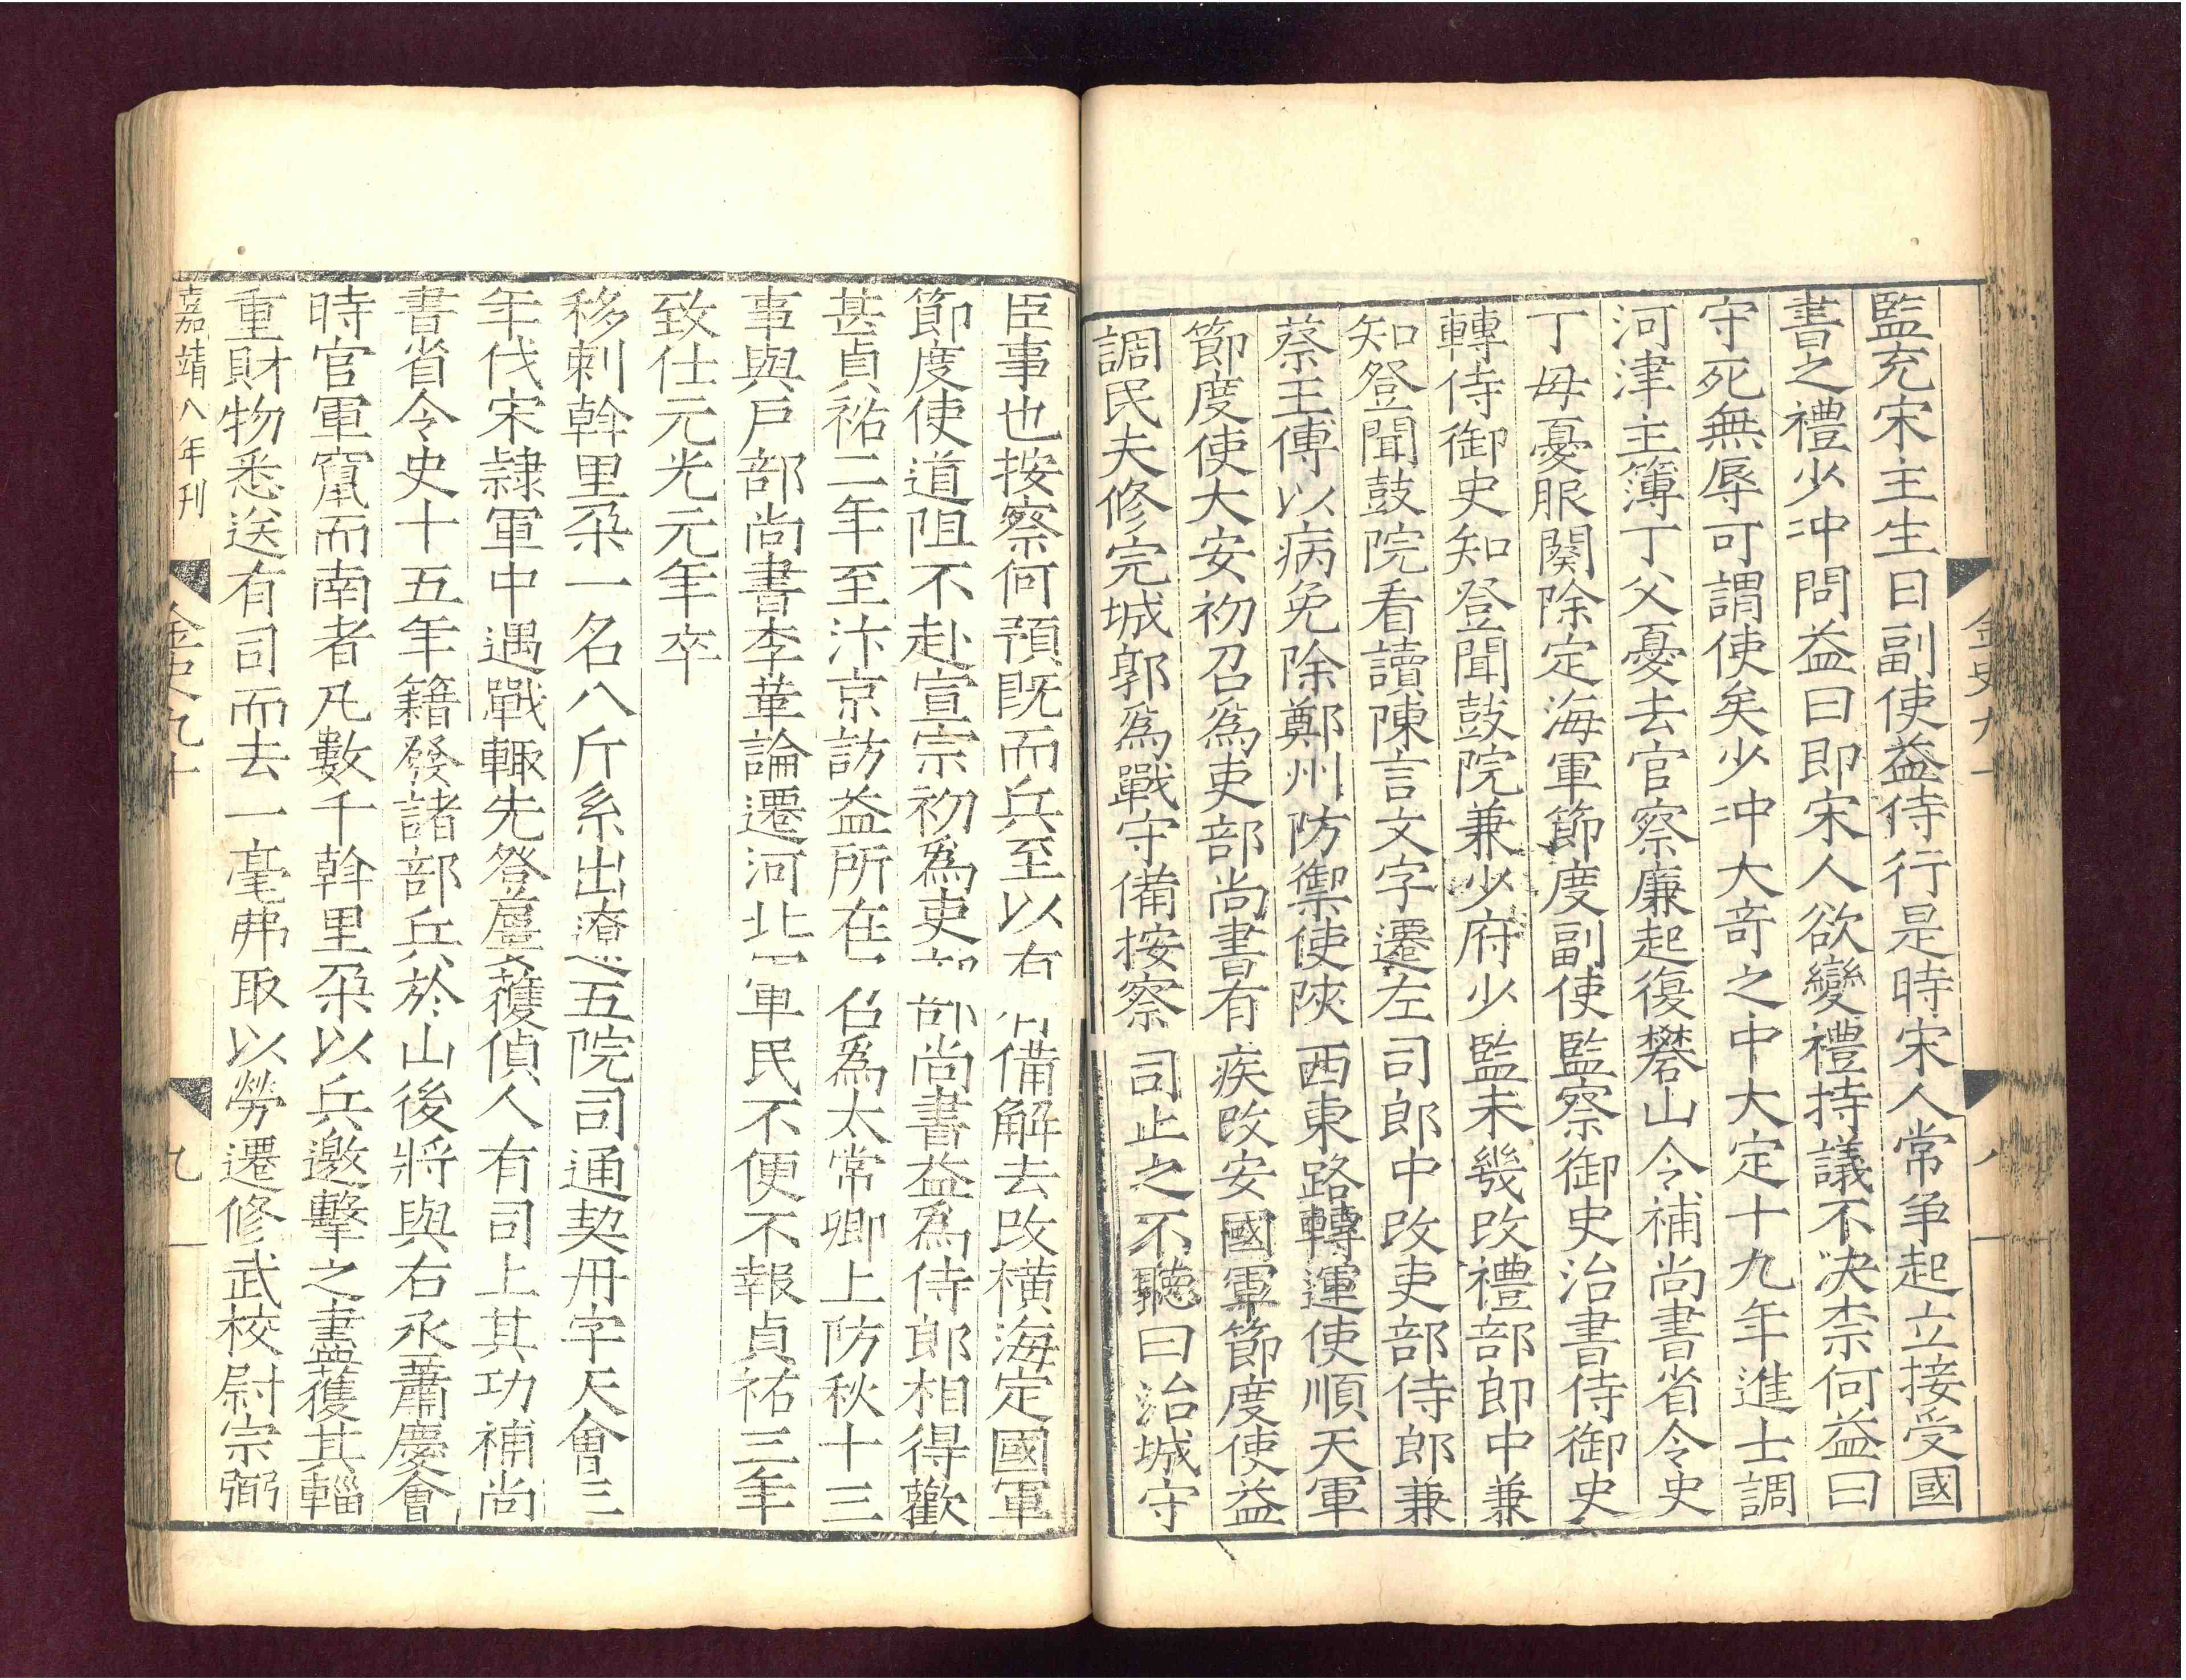 監充宋主生日副使益侍行是時宋人常争起立接受國
書之禮少冲問益曰即宋人欲變禮持議不决柰何益曰
守死無辱可謂使矣少冲大竒之中大定十九年進士調
河津主簿丁父憂去官察廉起復礬山令補尚書省令史
丁母憂服闋除定海軍節度副使監察御史治書侍御史
轉侍御史知登聞鼓院兼少府少監未幾改禮部郎中兼
知登聞鼓院看讀陳言文字遷左司郎中改吏部侍郎兼
蔡王傅以病免除鄭州防禦使陜西東路轉運使順天軍
節度使大安初召爲吏部尚書有疾改安國軍節度使益
調民夫修完城郭爲戰守備按察司止之不聽曰治城守
金史九十
八
臣事也按察何預既而兵至以有備解去改横海定國軍
節度使道阻不赴宣宗初爲吏部尚書益爲侍郎相得歡
甚貞祐二年至汴京訪益所在召爲太常卿上防秋十三
事與戶部尚書李華論遷河北軍民不便不報貞祐三年
致仕元光元年卒
移剌斡里朶一名八斤系出遼五院司通契丹字天會三
年伐宋隷軍中遇戰輒先登屢獲偵人有司上其功補尚
書省令史十五年籍發諸部兵於山後將與右丞蕭慶會
時官軍竄而南者凡數千斡里朶以兵邀擊之盡獲其輜
重財物悉送有司而去一毫弗取以勞遷修武校尉宗弼
嘉靖八年刊
金史九十
九